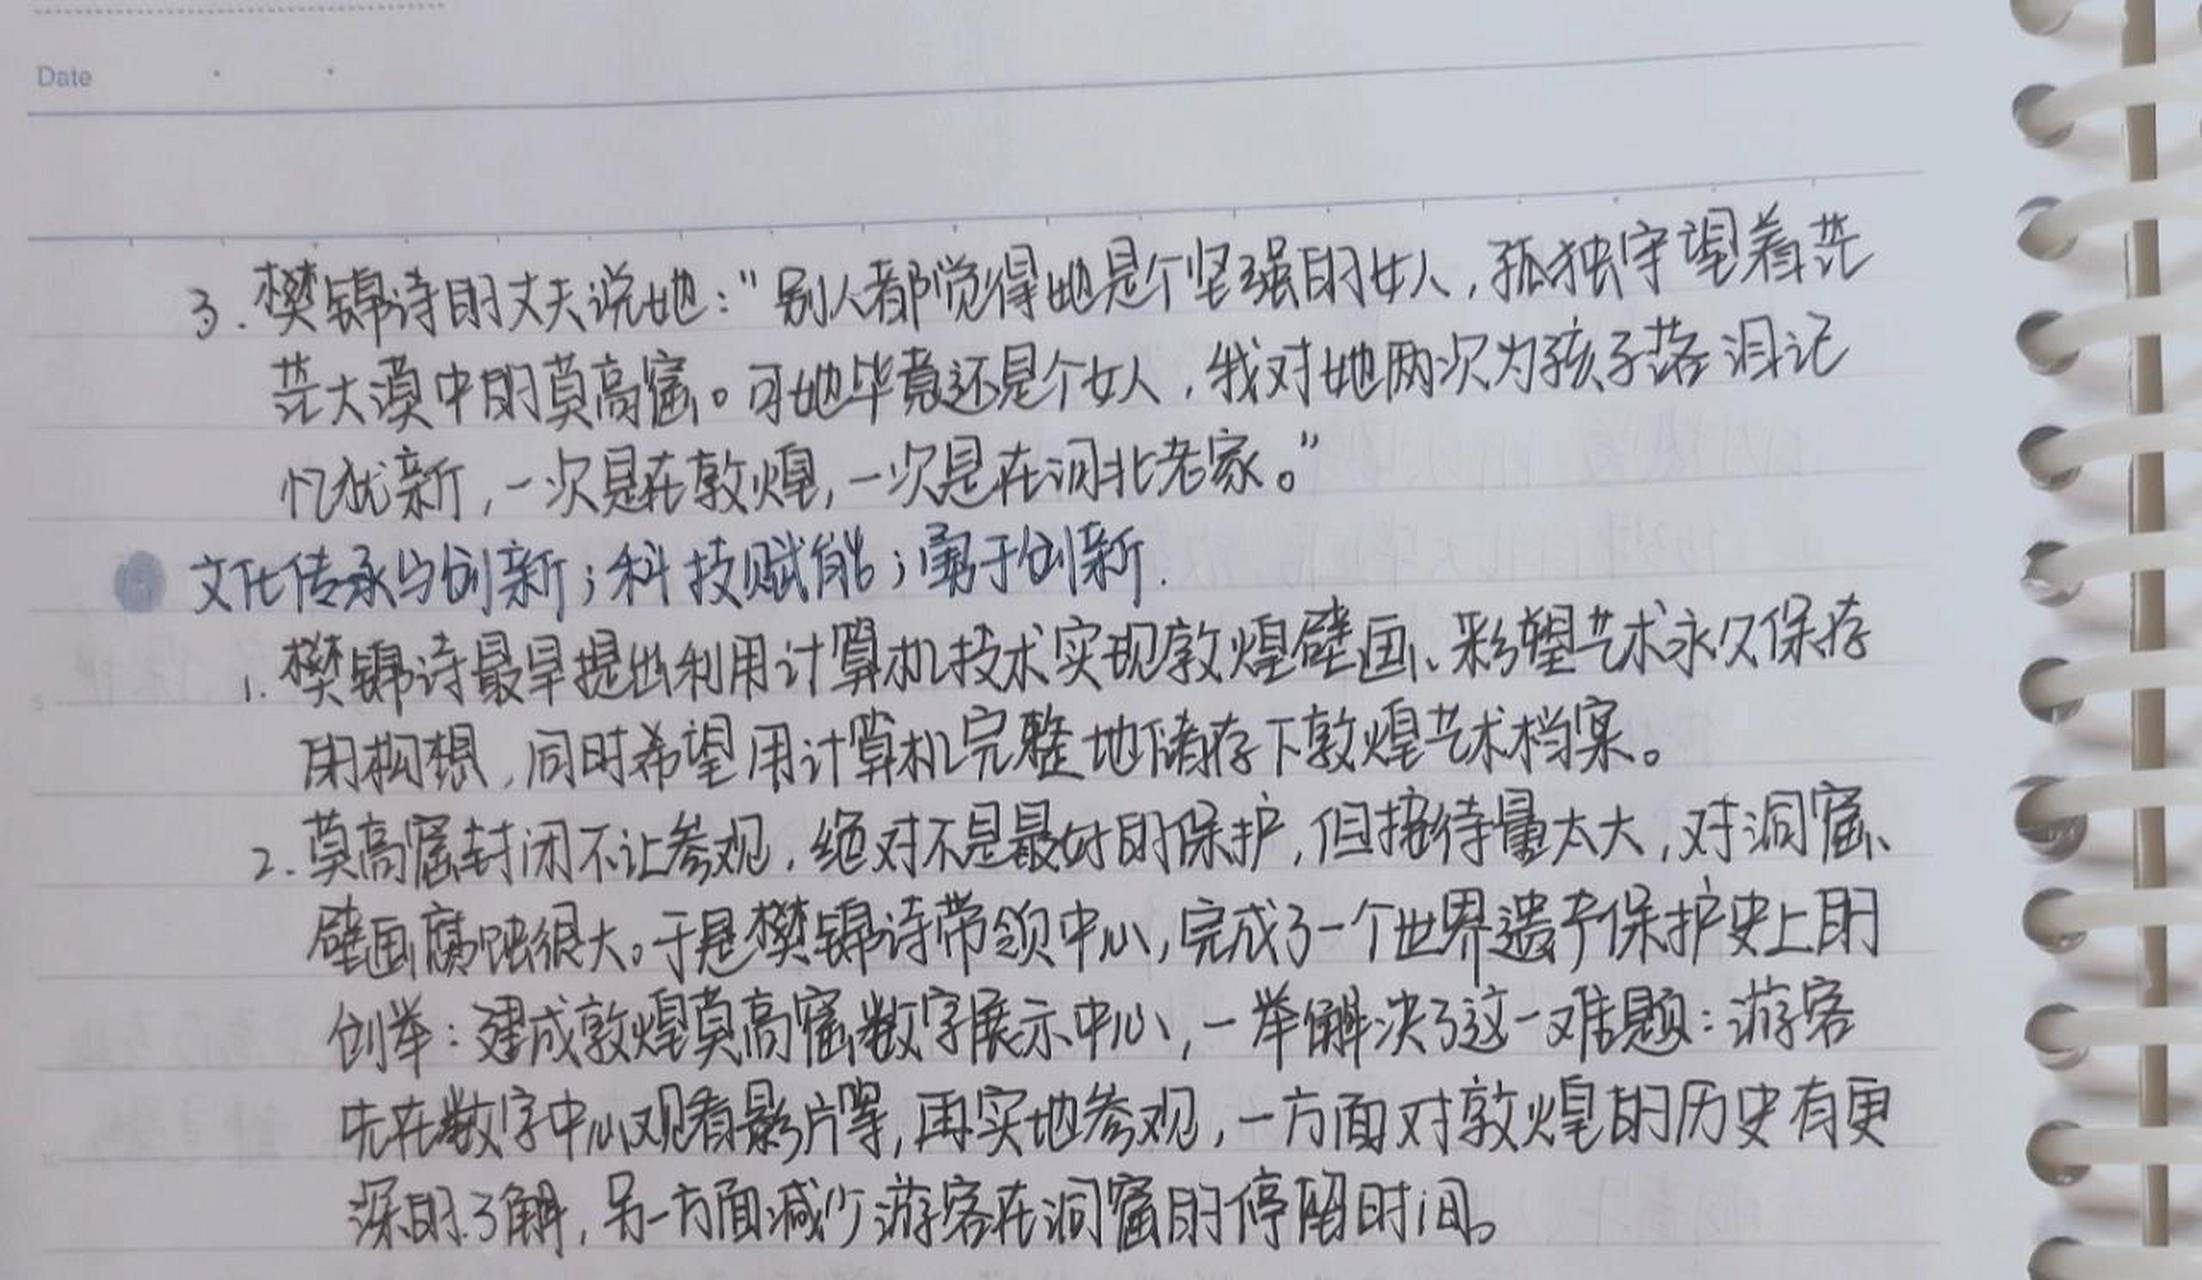 Date
3.樊锦诗的丈夫说她："别人都觉得她是个坚强的女人,孤独守望着茫
茫大漠中的莫高窟。可她毕竟还是个女人,我对她两次为孩子落泪记
忆犹新,一次是在敦煌,一次是在河北老家。"
文化传承与创新；科技赋能；勇于创新.
1.樊锦诗最早提出利用计算机技术实现敦煌壁画、彩塑艺术永久保存
的构想,同时希望用计算机完整地储存下敦煌艺术档案。
2.莫高窟封闭不让参观,绝对不是最好的保护,但接待量太大,对洞窟、
壁画腐蚀很大。于是樊锦诗带领中心,完成了一个世界遗产保护史上的
创举：建成敦煌莫高窟数字展示中心,一举解决了这一难题：游客
先在数字中心观看影片等,再实地参观,一方面对敦煌的历史有更
深的了解,另一方面减少游客在洞窟的停留时间。